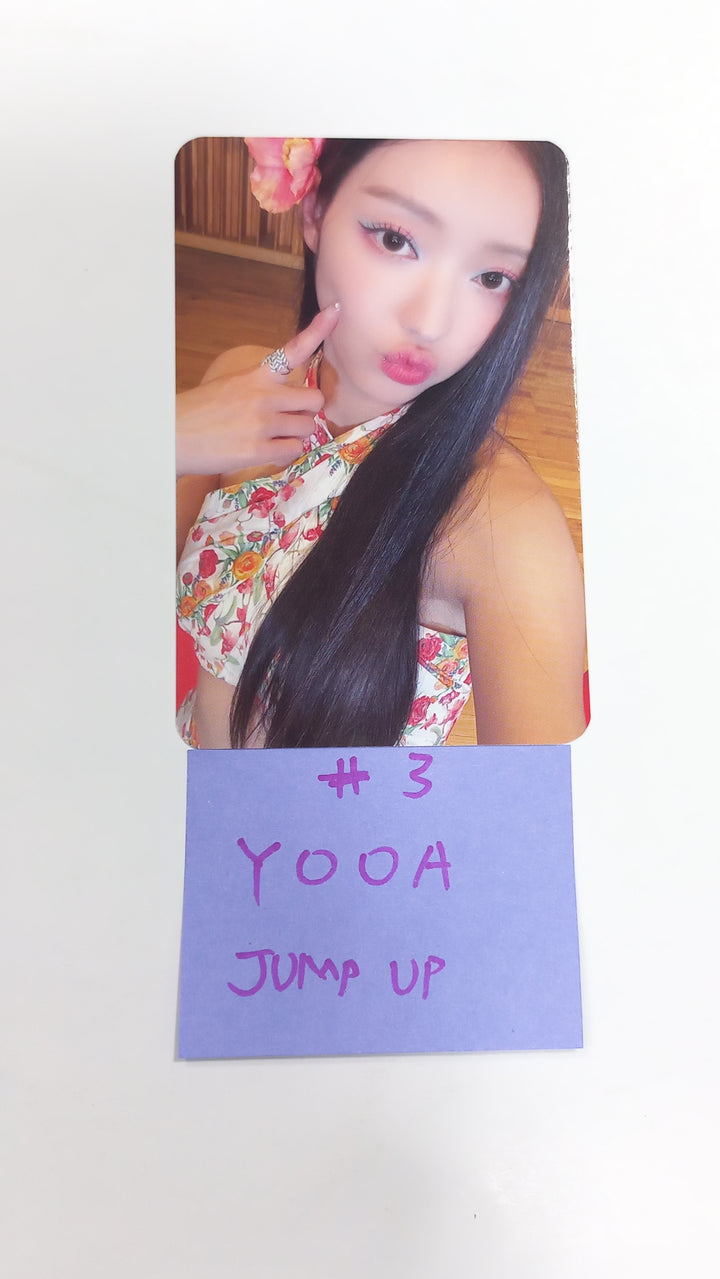 # 3
YOOA
JUMP UP